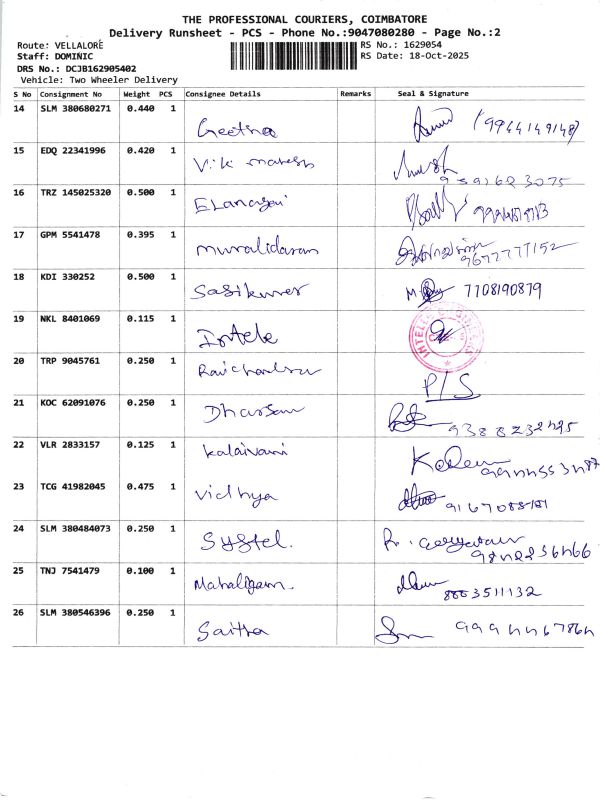 THE PROFESSIONAL COURIERS, COIMBATORE
Delivery Runsheet - PCS - Phone No.:9047080280 - Page No.:2
Route: VELLALORE
RS No.: 1629054
Staff: DOMINIC
RS Date: 18-Oct-2025
DRS No.: DCJB162905402
Vehicle: Two Wheeler Delivery
S No Consignment No Weight PCS Consignee Details Remarks Seal & Signature
14 SLM 380680271 0.440 1 Geetha
15 EDQ 22341996 0.420 1
16 TRZ 145025320 0.500 1
17 GPM 5541478 0.395 1 muralidaran 9677777152
18 KDI 330252 0.500 1 Sasikumar 7708190879
19 NKL 8401069 0.115 1 Intele
20 TRP 9045761 0.250 1 P/S
21 KOC 62091076 0.250 1
22 VLR 2833157 0.125 1 Kalaivani
23 TCG 41982045 0.475 1 Vidhya
24 SLM 380484073 0.250 1 Systel.
25 TNJ 7541479 0.100 1 8883511132
26 SLM 380546396 0.250 1